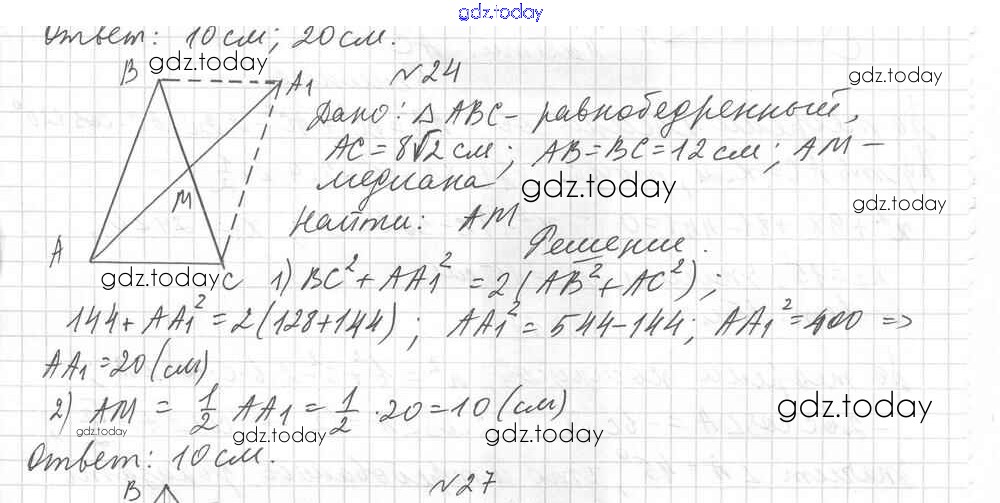 gdz.today
Ответ: 10 см; 20 см.
B gdz.today A₁ №24 gdz.today
Дано: △ ABC – равнобедренный,
AC = 8√2 см; AB = BC = 12 см; AM –
M медиана gdz.today gdz.today
Найти: AM
A Решение.
gdz.today C 1) BC² + AA₁² = 2(AB² + AC²);
144 + AA₁² = 2(128 + 144); AA₁² = 544 – 144; AA₁² = 400 =>
AA₁ = 20 (см)
2) AM = 1/2 AA₁ = 1/2 · 20 = 10 (см) gdz.today
gdz.today gdz.today gdz.today
Ответ: 10 см.
B №27